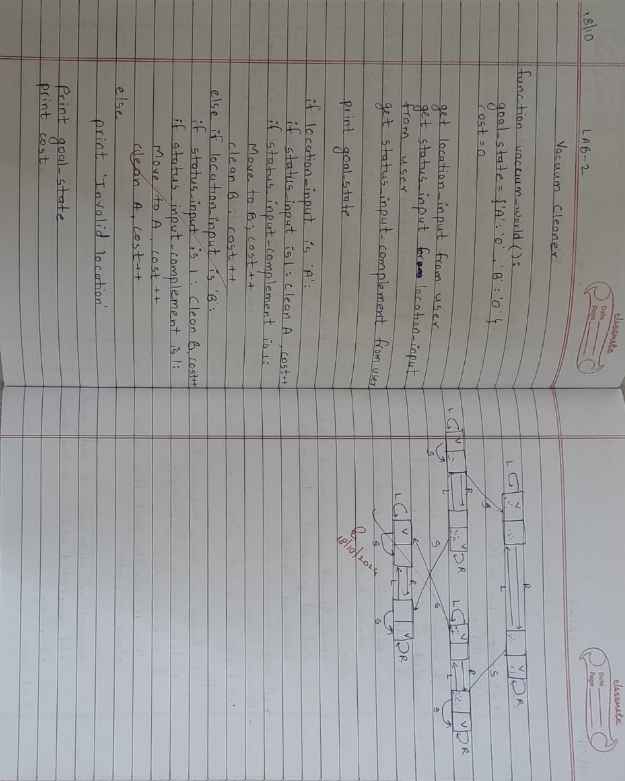 classmate
Date
Page
18/10
LAB-2
Vacuum Cleaner
function vaccum_world():
goal_state = {'A':'0', 'B':'0'}
cost = 0
get location_input from user
get status_input from location_input
from user
get status_input_complement from user
print goal_state
if location_input is 'A':
if status_input is 1: clean A, cost++
if status_input-complement is 1:
Move to B, cost++
clean B, cost++
else if location_input is 'B':
if status_input is 1: clean B, cost++
if status_input_complement is 1:
Move to A, cost++
clean A, cost++
else
print 'Invalid location'
print goal_state
print cost
classmate
Date
Page
R
L V V R
L
S S
R R
L V V R L V V R
L L
S S S S
R
L V V R
L
S S
18/10/2024